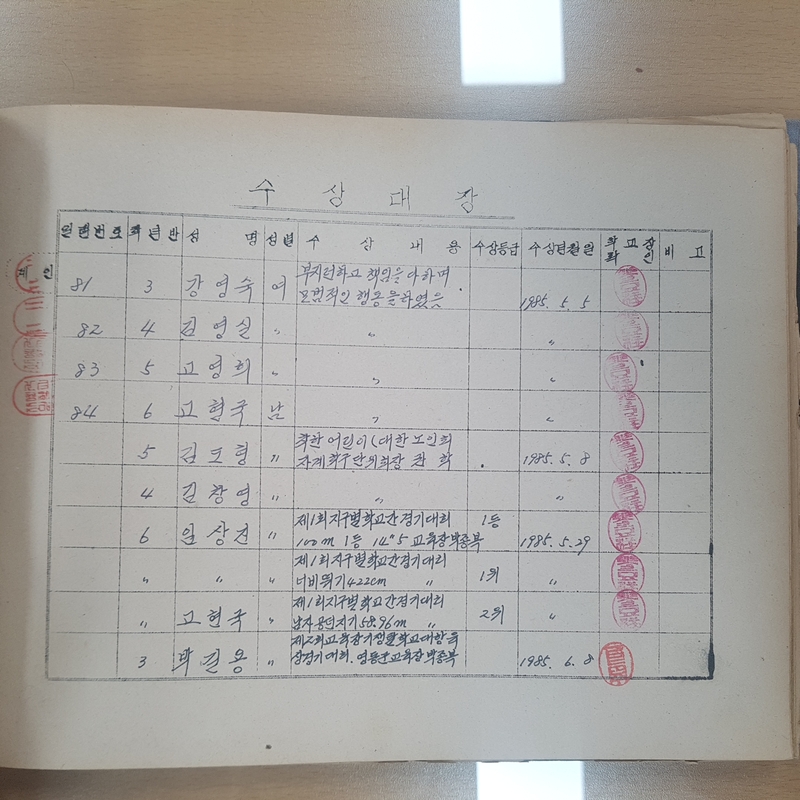 수 상 대 장
일련번호 학년반 성 명 성별 수 상 내 용 수상등급 수상년월일 학교장 확인 비 고
81 3 강영숙 여 부지런하고 책임을 다하며
모범적인 행동을 하였음 1985. 5. 5
82 4 김영실 〃 〃 〃
83 5 고영희 〃 〃 〃
84 6 고현국 남 〃 〃
5 김도형 〃 착한 어린이 (대한노인회
1985. 5. 8
4 김창영 〃 〃 〃
6 임상건 〃 제1회지구별학교간경기대회 1등
100m 1등 14"5 교육장박종복 1985. 5. 29
〃 〃 〃 제1회지구별학교간경기대회
너비뛰기 422cm 〃 1위 〃
〃 고현국 〃 제1회지구별학교간경기대회
남자공던지기 58.96m 〃 2위 〃
3 박진용 〃 제2회교육장기쟁탈학교대항육
상경기대회. 영동군교육장박종복 1985. 6. 8